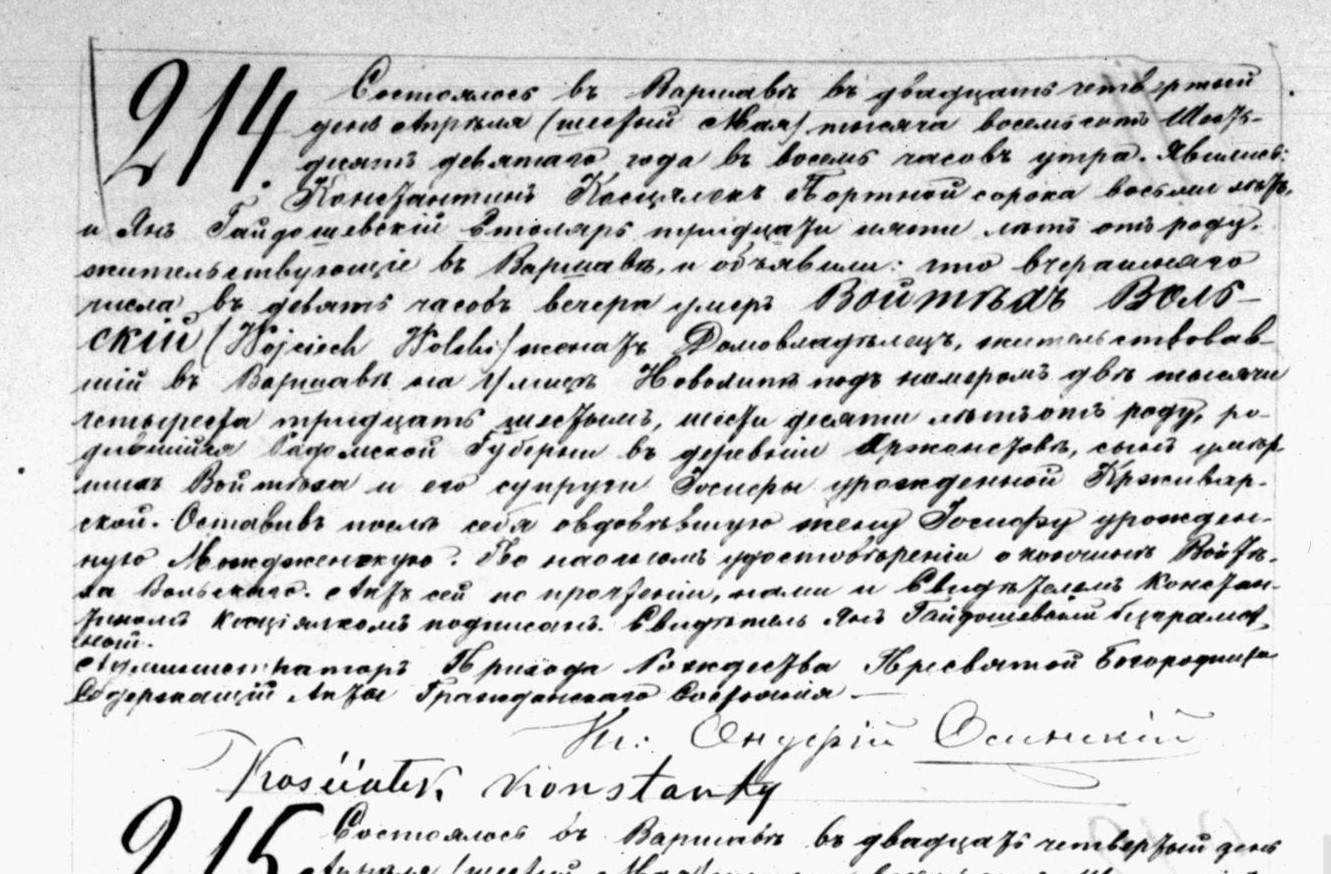 214.
Состоялось въ Варшавѣ въ двадцать четвертый
день Апрѣля (шестый Мая) тысяча восемьсотъ Шесть-
десятъ девятаго года въ восемь часовъ утра. Явились:
Константинъ Косцялекъ Портной сорока восьми лѣтъ,
и Янъ Гайдошевскій Столяръ тридцати пяти лѣтъ отъ роду,
жительствующіе въ Варшавѣ, и объявили: что вчерашняго
числа въ девять часовъ вечера умеръ Войтѣхъ Воль-
скій (Wojciech Wolski) женатъ Домовладѣлецъ, жительствовав-
шій въ Варшавѣ на Улицѣ Новолипѣ подъ номеромъ двѣ тысячи
четыреста тридцать шестымъ, шести десяти лѣтъ отъ роду, ро-
дившійся Радомской Губерніи въ деревніи сынъ умер-
шихъ Войтѣха и его супруги урожденной
ской. Оставивъ послѣ себя овдовѣвшую жену урожден-
ную По настоемъ удостовѣреніи о кончинѣ Войтѣ-
ха Вольскаго. Актъ сей по прочтеніи, нами и Свидѣтелемъ Констан-
тиномъ Косціялкомъ подписанъ. Свидѣтель Янъ Гайдошевскій
ной.
Администраторъ Прихода Рождества Пресвятой Богородицы
Содержащій Акты Гражданскаго Состоянія —
Кс: Осинскій
Kościałek Konstanty
215
Состоялось въ Варшавѣ въ двадцать четвертый день
Апрѣля (шестый Мая)